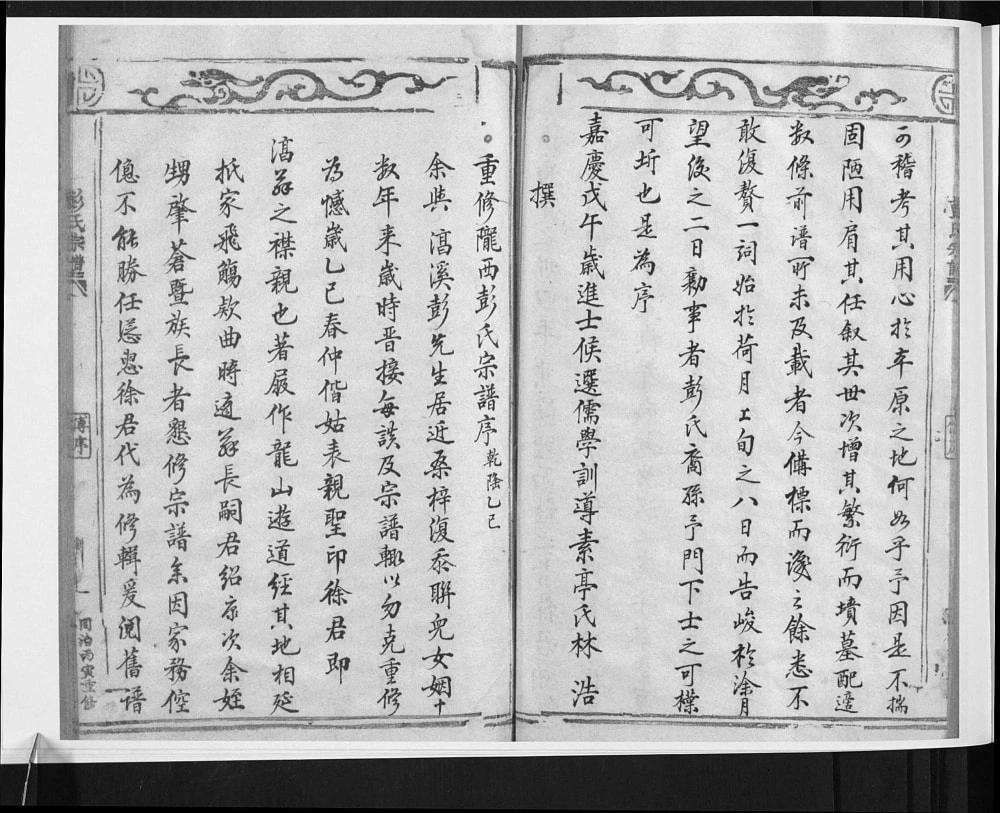 可稽考其用心於卒原之地何如乎予因是不揣
固陋用肩其任叙其世次增其繁衍而墳墓配
数條前譜所未及載者今備標而
敢復贅一詞始於荷月上旬之八日而告峻於涂月
望後之二日勷事者彭氏裔孫予門下士之可樸
可圻也是為序
嘉慶戊午歲進士候選儒學訓導素亭氏林 浩
撰
重修隴西彭氏宗譜序 乾隆乙巳
余與 溪彭先生居近桑梓復忝聨兒女姻十
数年来歲時晋接每談及宗譜輙以勿克重修
為憾歲乙巳春仲偕姑表親聖印徐君即
翁之襟親也著屐作龍山遊道經其地相延
抵家飛觴欵曲時適翁長嗣君紹宗次余姪
甥肇蒼暨族長者懇修宗譜余因家務倥
傯不能勝任慫恿徐君代為修輯爰閲舊譜
彭氏宗譜
傳序
同治丙寅重修